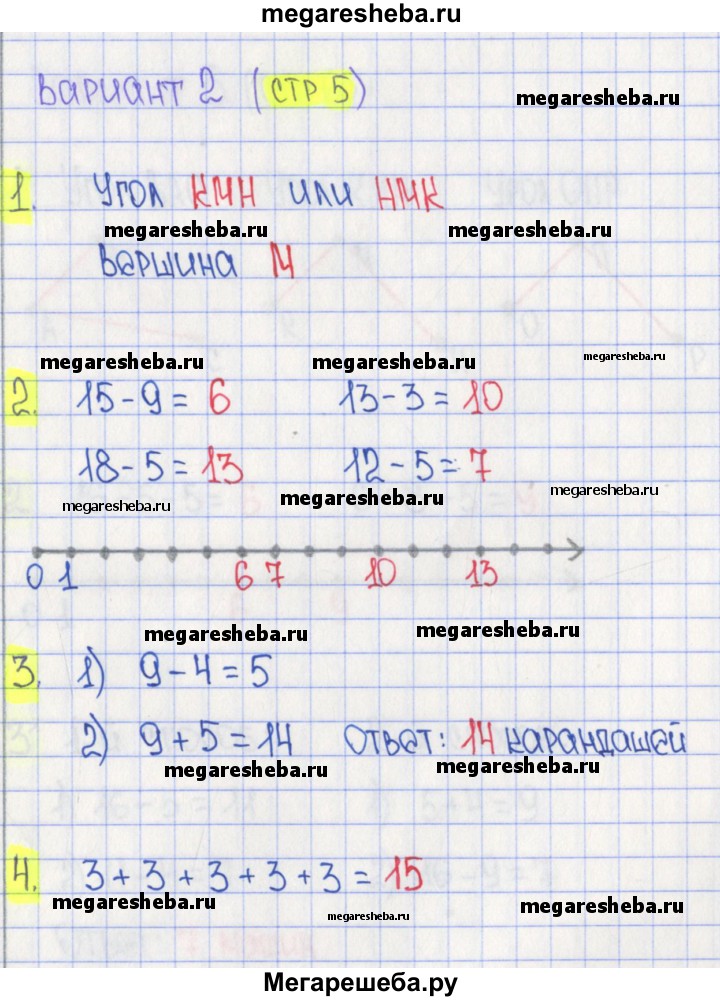 megaresheba.ru
Вариант 2 (стр 5)
megaresheba.ru
1. Угол КМН или НМК
megaresheba.ru megaresheba.ru
Вершина М
megaresheba.ru megaresheba.ru megaresheba.ru
2. 15 - 9 = 6 13 - 3 = 10
18 - 5 = 13 12 - 5 = 7
megaresheba.ru megaresheba.ru megaresheba.ru
0 1 6 7 10 13
megaresheba.ru megaresheba.ru
3. 1) 9 - 4 = 5
2) 9 + 5 = 14 Ответ: 14 карандашей
megaresheba.ru megaresheba.ru
4. 3 + 3 + 3 + 3 + 3 = 15
megaresheba.ru megaresheba.ru megaresheba.ru
Мегарешеба.ру